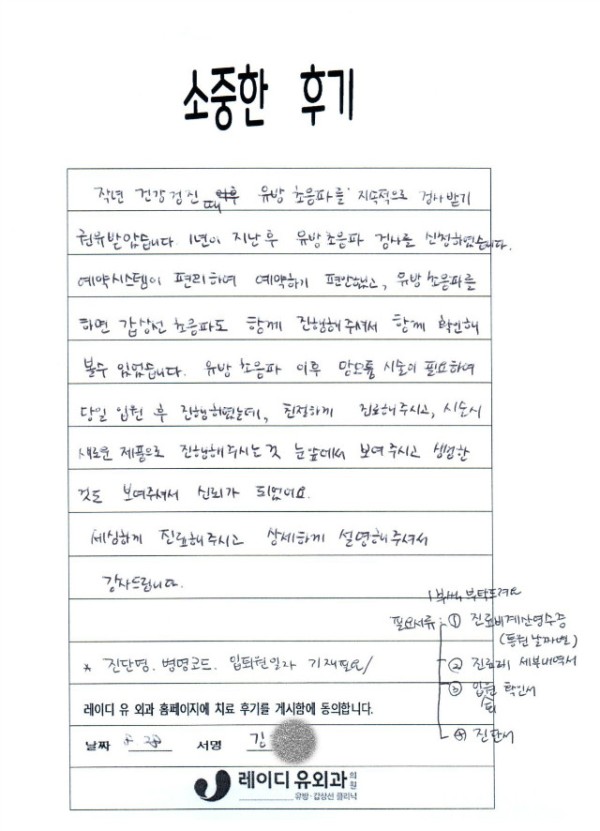 소중한 후기
작년 건강검진 때 유방 초음파를 지속적으로 검사받기
권유받았습니다. 1년이 지난 후 유방초음파 검사를 신청하였습니다.
예약시스템이 편리하여 예약하기 편안했고, 유방초음파를
하면 갑상선 초음파도 함께 진행해주셔서 함께 확인해
볼수 있었습니다. 유방 초음파 이후 맘모톰 시술이 필요하여
당일 입원 후 진행하였는데, 친절하게 진료해주시고, 시술시
새로운 제품으로 진행해주시는 것 눈앞에서 보여주시고
것도 보여주셔서 신뢰가 되었어요.
세심하게 진료해주시고 상세하게 설명해주셔서
감사드립니다.
1부씩 부탁드려요
필요서류 ① 진료비계산영수증
(통원날짜별)
② 진료비 세부내역서
* 진단명. 병명코드. 입퇴원일자 기재필요/
③ 입원 확인서
퇴
④ 진단서
레이디 유 외과 홈페이지에 치료 후기를 게시함에 동의합니다.
날짜 서명 김
레이디 유외과 의원
유방·갑상선 클리닉